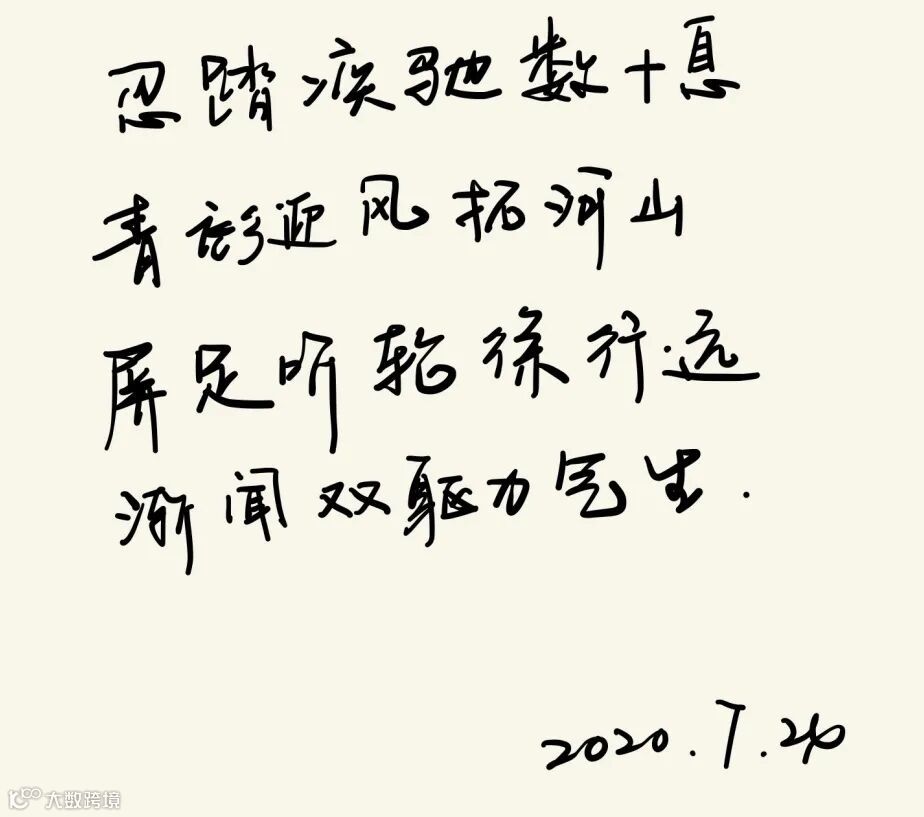 忍踏疾驰数十息
青彭迎风拓河山
屏足听轮徐行远
渐闻双驱力气生.
2020.7.26
大数跨境